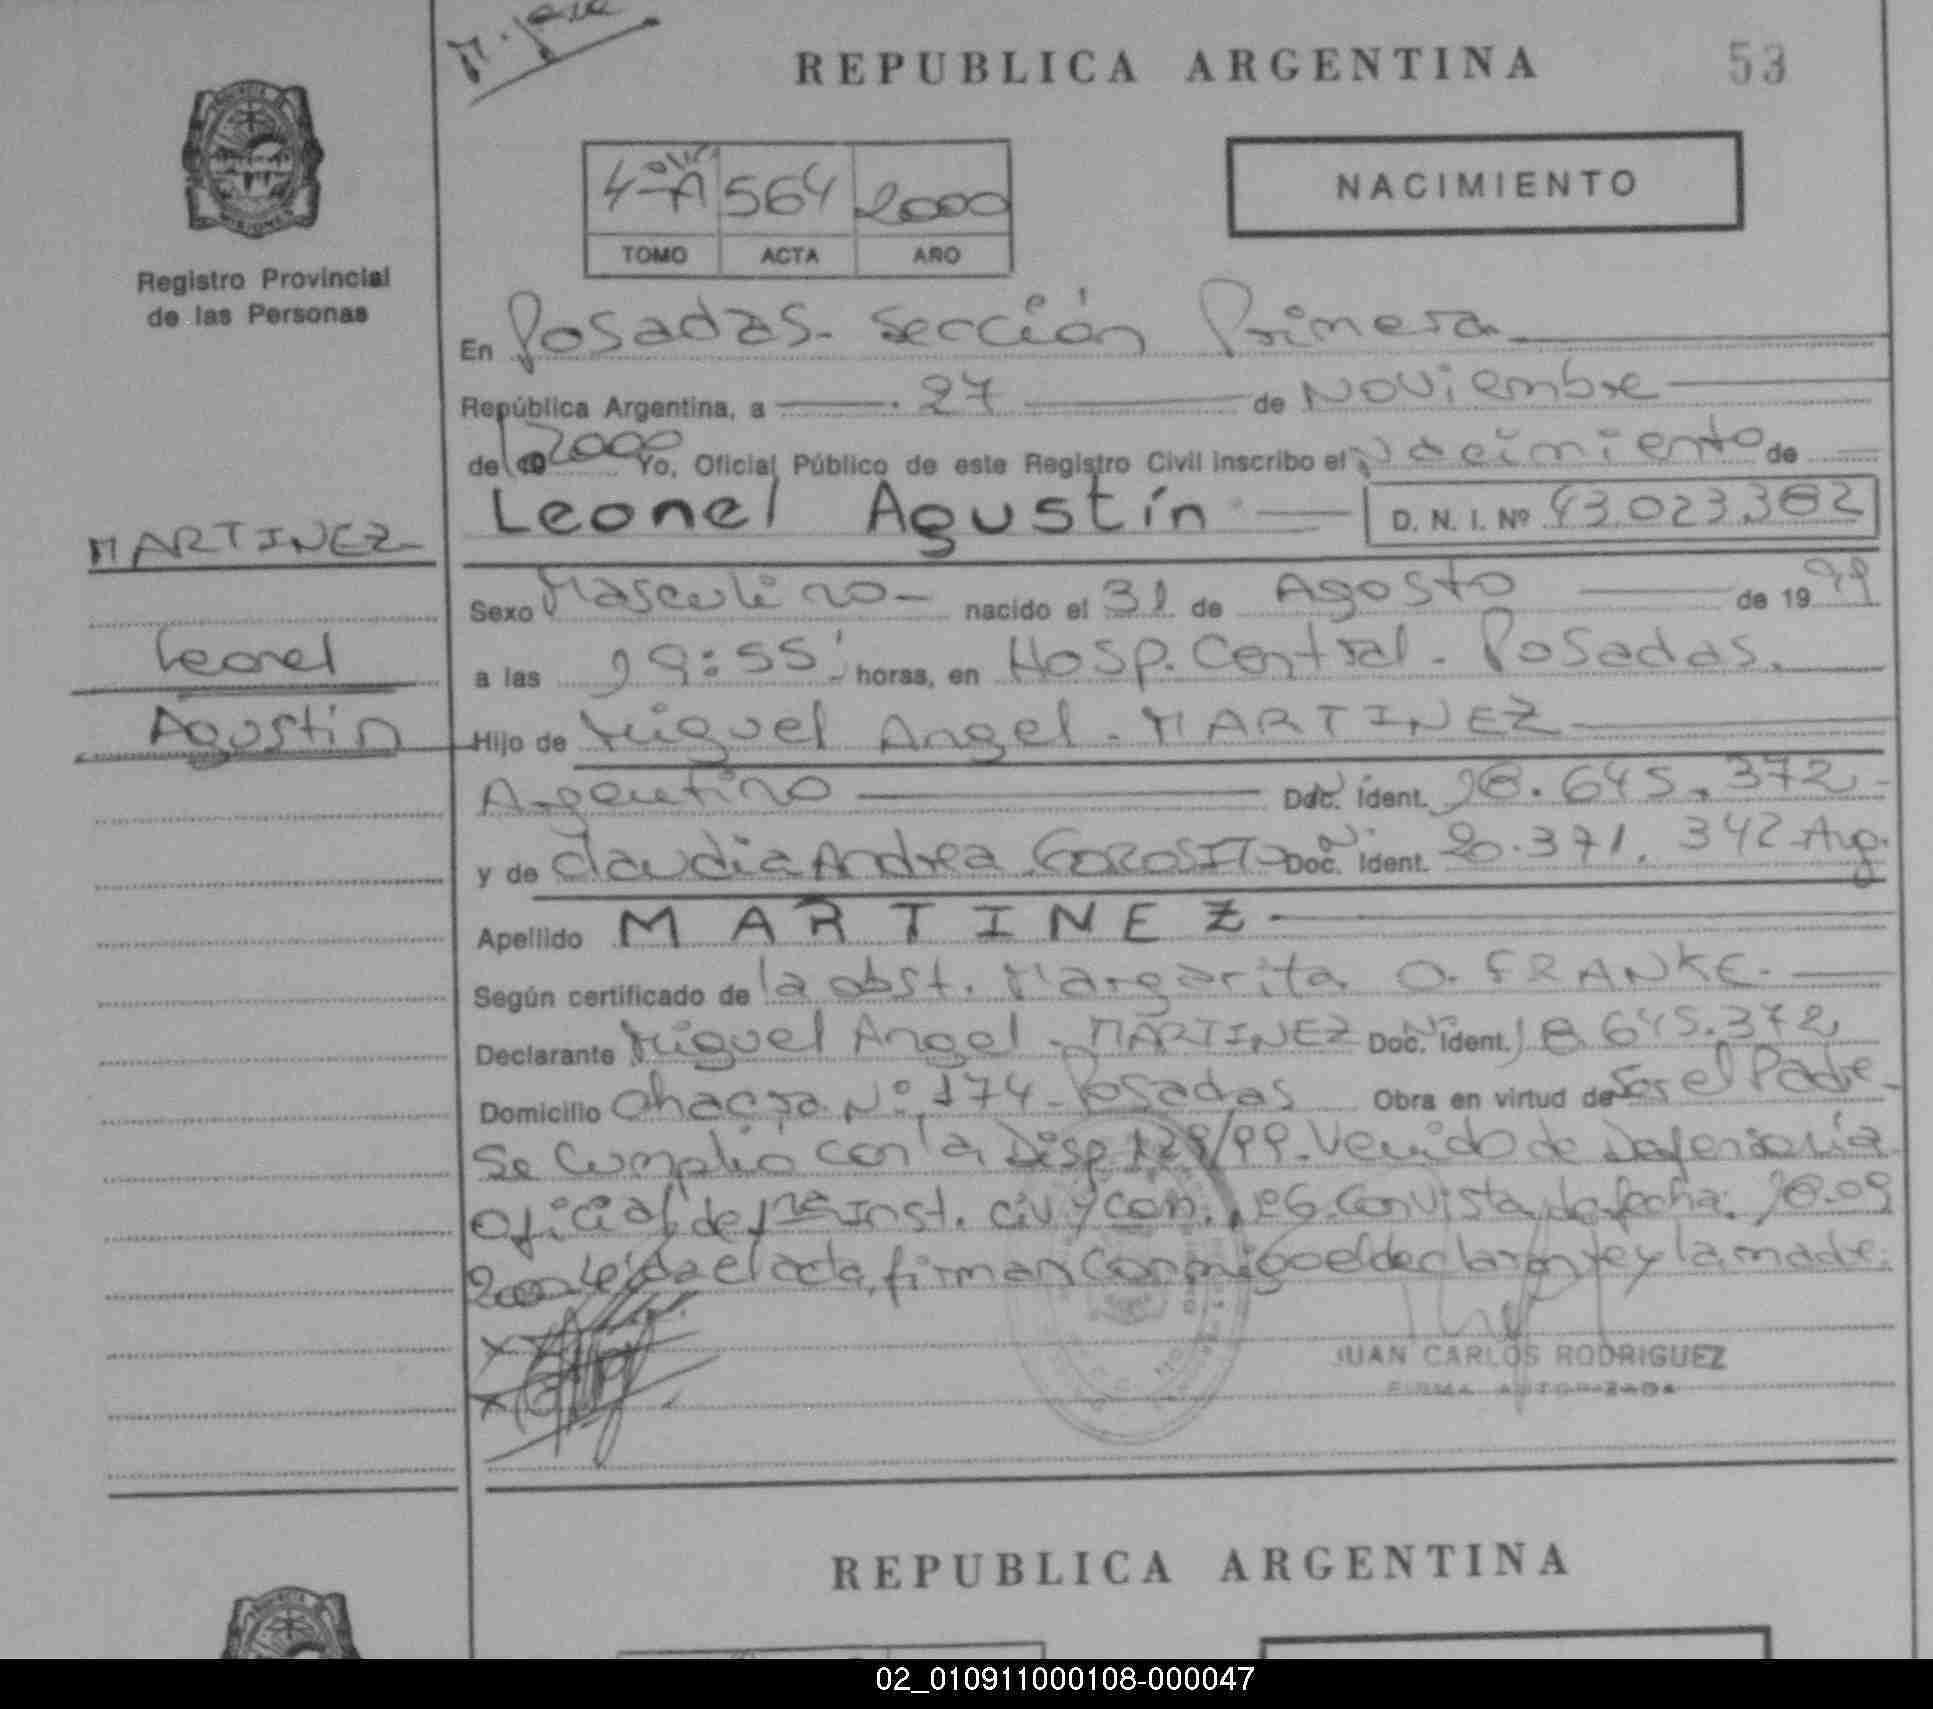 REPUBLICA ARGENTINA
53
4º A 564 2000
TOMO ACTA AÑO
NACIMIENTO
Registro Provincial
de las Personas
En Posadas - Sección Primera
República Argentina, a 27 de Noviembre
de 2000 Yo, Oficial Público de este Registro Civil inscribo el Nacimiento de
Leonel Agustín D. N. I. Nº 43.023.382
MARTINEZ
Leonel
Agustín
Sexo Masculino - nacido el 31 de Agosto de 1999
a las 19:55' horas, en Hosp. Central - Posadas.
Hijo de Miguel Angel - MARTINEZ
Argentino Doc. Nº Ident. 18.645.372 -
y de Claudia Andrea GOROSITO Doc. Nº Ident. 20.371.342 Arg.
Apellido MARTINEZ
Según certificado de la obst. Margarita O. FRANKE.
Declarante Miguel Angel - MARTINEZ Doc. Nº Ident. 18.645.372
Domicilio Chacra Nº 174 - Posadas Obra en virtud de Ser el Padre -
Se Cumplió con la Disp 128/99. Venido de Defensoría
Oficial de 1ra Inst. Civ y Com. Con vista de fecha: 18.09
2000 Leída el acta, firman conmigo el declarante y la madre.
JUAN CARLOS RODRIGUEZ
FIRMA AUTORIZADA
REPUBLICA ARGENTINA
02_010911000108-000047